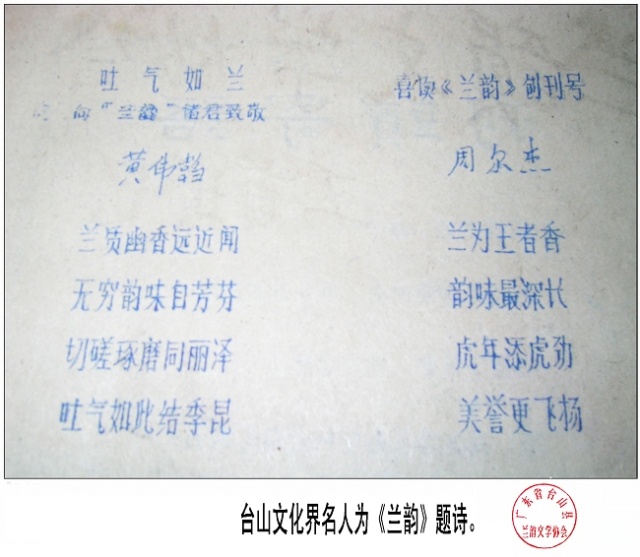 吐气如兰
向“兰韵”诸君致敬
黄伟
兰质幽香远近闻
无穷韵味自芳芬
切磋琢磨同丽泽
吐气如此结季昆
喜《兰韵》创刊号
周尔杰
兰为王者香
韵味最深长
虎年添虎劲
美誉更飞扬
台山文化界名人为《兰韵》题诗。
广东省台山县
兰韵文学协会